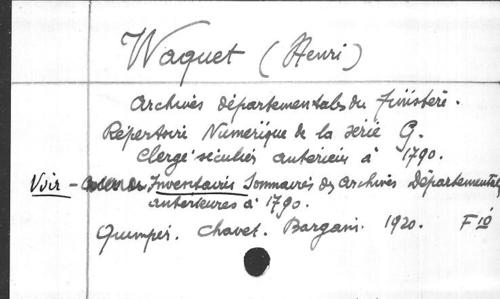 Waquet (Henri)
Archives départementales du finistère.
Répertoire Numérique de la série G.
Clergé séculier antérieur à 1790.
Voir - Inventaires Sommaires des Archives Départementales
antérieures à 1790.
Quimper. Bargain. 1920. F 10